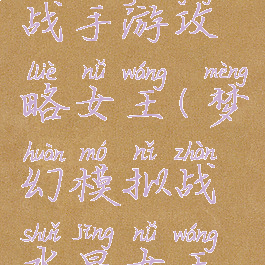 战手游攻
lüè nǚ wáng mèng
略女王(梦
huàn mó nǐ zhàn
幻模拟战
shuǐ jīng nǚ wáng
水晶女王